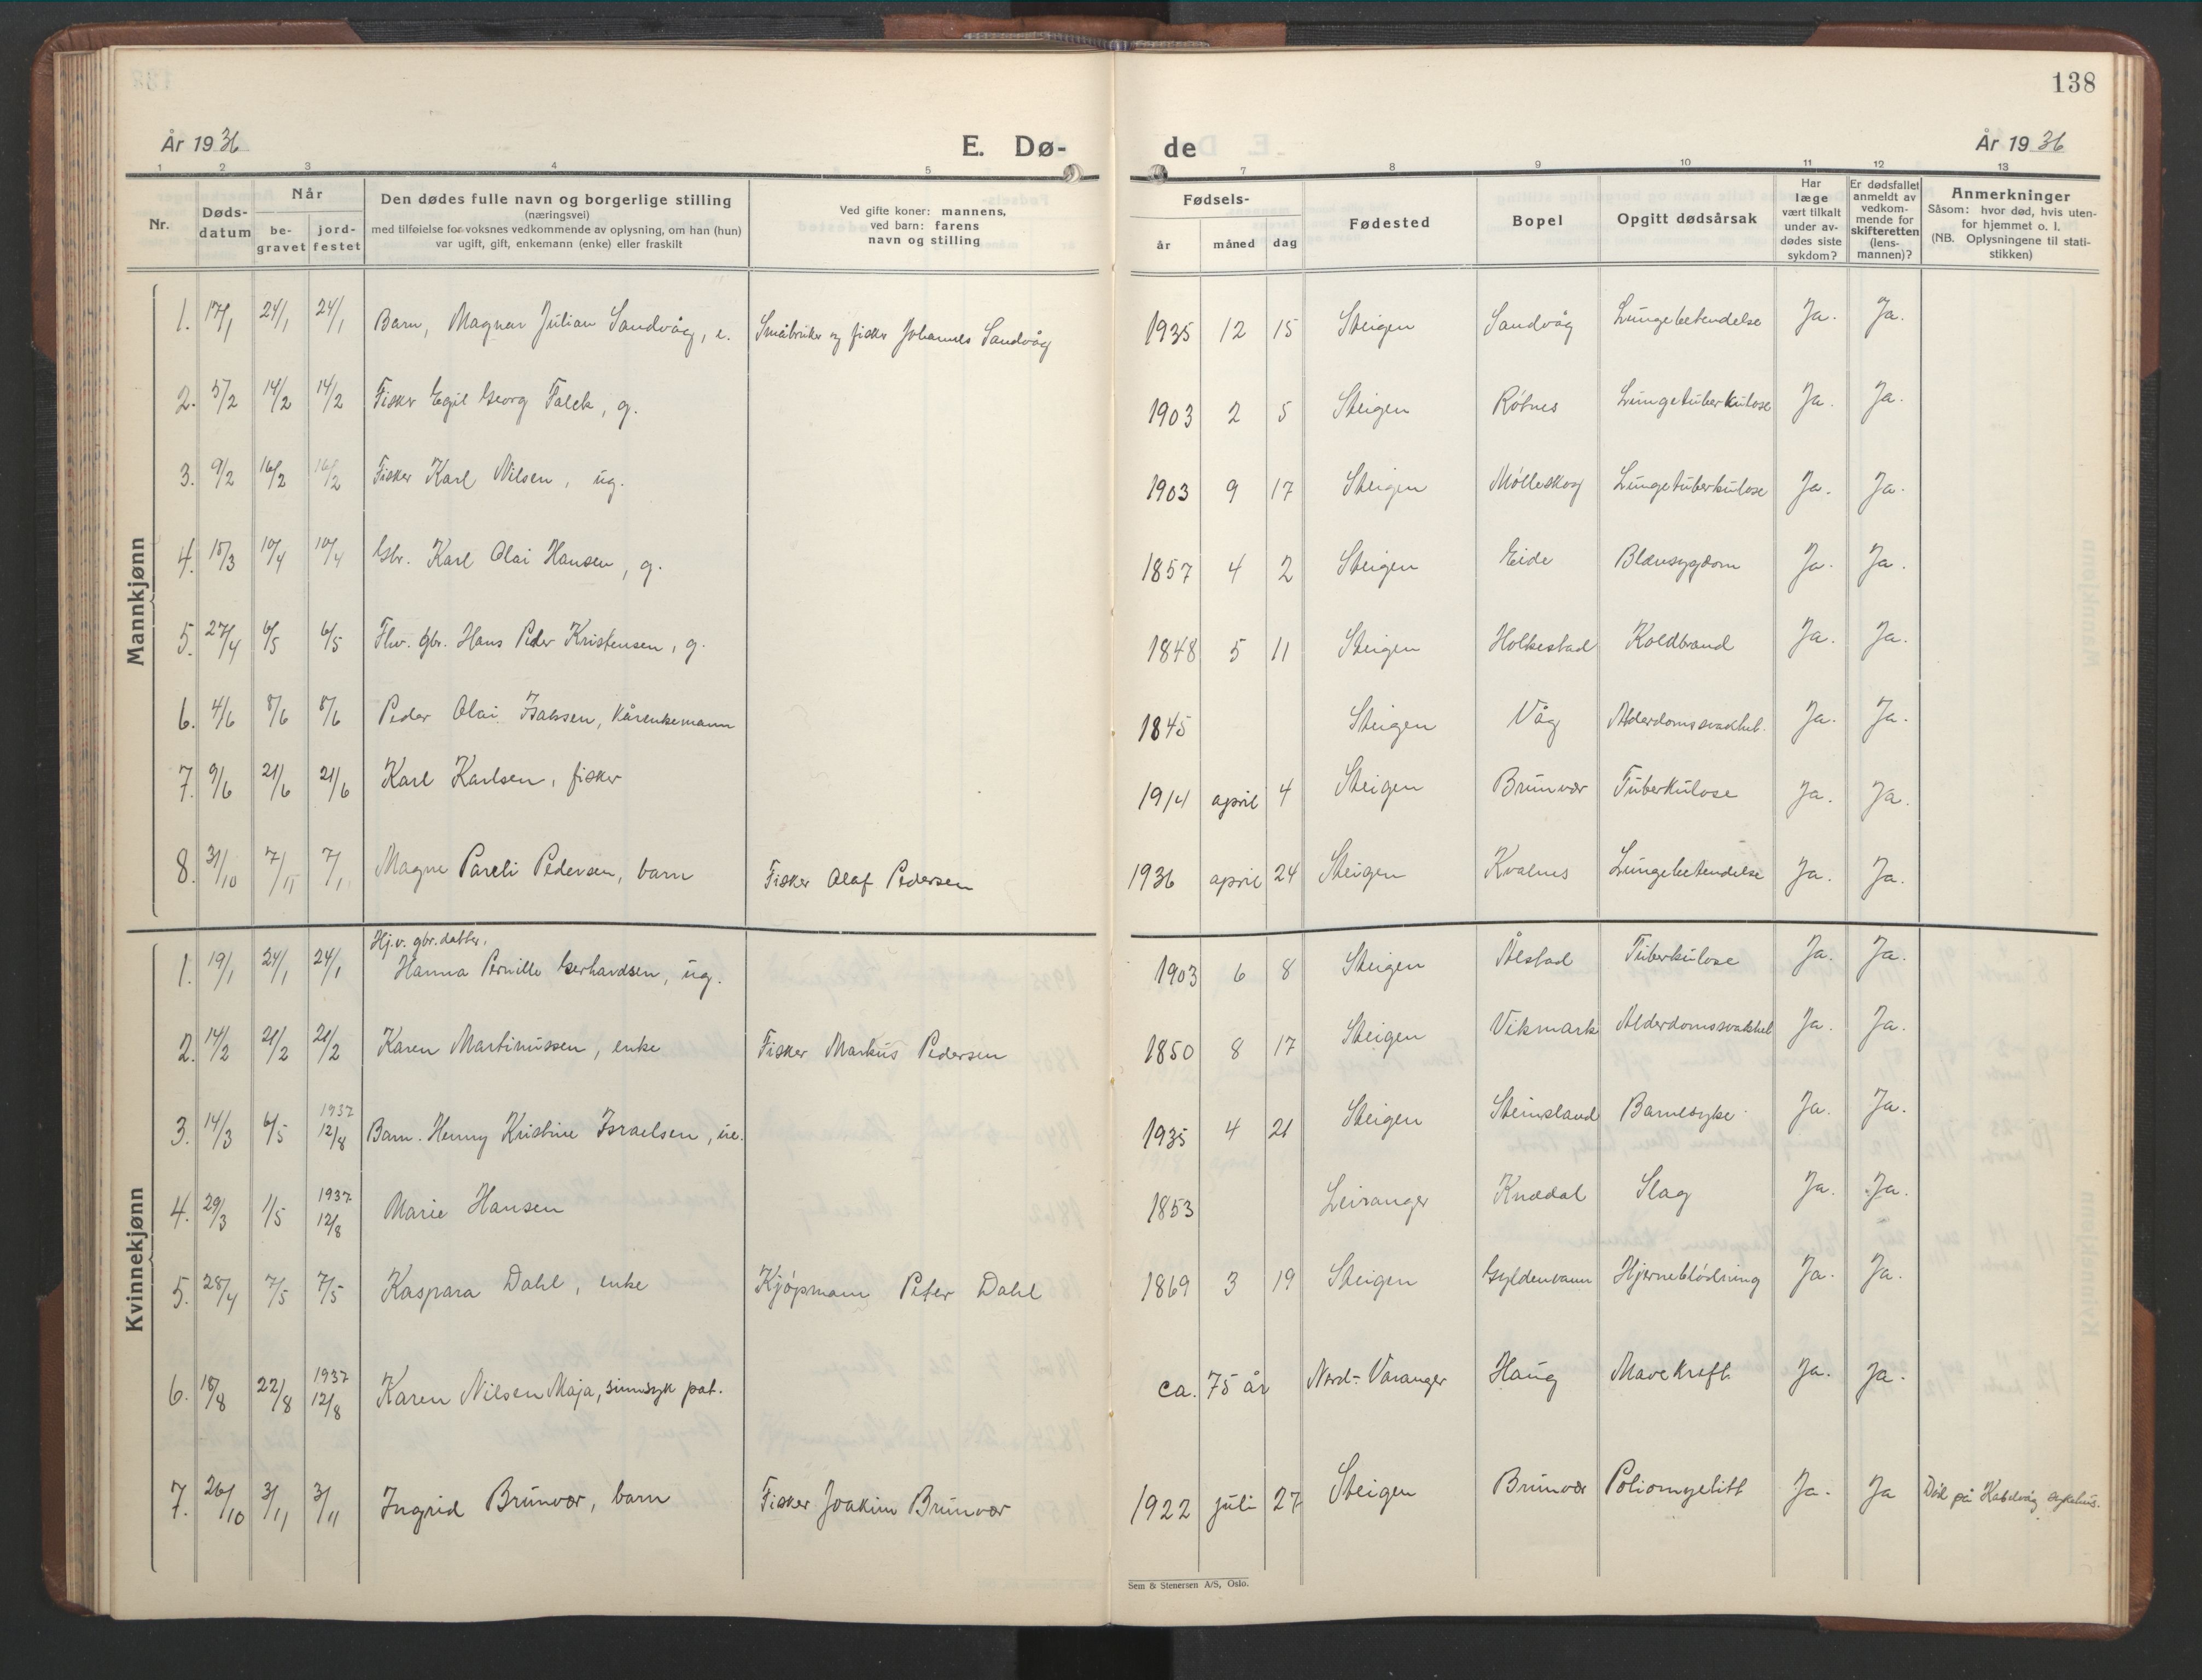 138
År 1936 E. Dø-de År 1936
1 2 3 4 5 7 8 9 10 11 12 13
Nr.
Døds-
datum
Når
be-
gravet
jord-
festet
Den dødes fulle navn og borgerlige stilling
(næringsvei)
med tilføielse for voksnes vedkommende av oplysning, om han (hun)
var ugift, gift, enkemann (enke) eller fraskilt
Ved gifte koner: mannens,
ved barn: farens
navn og stilling
Fødsels-
år måned dag
Fødested
Bopel
Opgitt dødsårsak
Har
læge
vært tilkalt
under av-
dødes siste
sykdom?
Er dødsfallet
anmeldt av
vedkom-
mende for
skifteretten
(lens-
mannen)?
Anmerkninger
Såsom: hvor død, hvis uten-
for hjemmet o. l.
(NB. Oplysningene til stati-
stikken)
Mannkjønn
1. 17/1 24/1 24/1 Barn, Magnar Julian Sandvåg, e. Småbruker og fisker Johannes Sandvåg 1935 12 15 Steigen Sandvåg Lungebetendelse Ja. Ja.
2. 5/2 14/2 14/2 Fisker Egil Georg Falck, g. 1903 2 5 Steigen Røtnes Lungetuberkulose Ja. Ja.
3. 9/2 16/2 16/2 Fisker Karl Nilsen, ug. 1903 9 17 Steigen Mølleskog Lungetuberkulose Ja. Ja.
4. 18/3 10/4 10/4 Gbr. Karl Olai Hansen, g. 1857 4 2 Steigen Eide Blæresygdom Ja. Ja.
5. 27/4 6/5 6/5 Fhv. gbr. Hans Peder Kristensen, g. 1848 5 11 Steigen Holkestad Koldbrand Ja. Ja.
6. 4/6 8/6 8/6 Peder Olai Isaksen, kårenkemann 1845 Steigen Våg Alderdomssvakhet. Ja. Ja.
7. 9/6 21/6 21/6 Karl Karlsen, fisker 1914 april 4 Steigen Brunvær Tuberkulose Ja. Ja.
8. 31/10 7/11 7/11 Magne Pareli Pedersen, barn Fisker Olaf Pedersen 1936 april 24 Steigen Kvalnes Lungebetendelse Ja. Ja.
Kvinnekjønn
Hj.v. gbr.datter,
1. 19/1 24/1 24/1 Hanna Pernille Gerhardsen, ug. 1903 6 8 Steigen Ålstad Tuberkulose Ja. Ja.
2. 14/2 21/2 21/2 Karen Martinussen, enke Fisker Markus Pedersen 1850 8 17 Steigen Vikmark Alderdomssvakhet Ja. Ja.
1937
3. 14/3 6/5 12/8 Barn. Henny Kristine Israelsen, ue. 1935 4 21 Steigen Steinsland Barnesyke Ja. Ja.
1937
4. 29/3 1/5 12/8 Marie Hansen 1853 Leiranger Knædal Slag Ja. Ja.
5. 28/4 7/5 7/5 Kaspara Dahl, enke Kjøpmann Peter Dahl 1869 3 19 Steigen Gyldenvann Hjerneblødning Ja. Ja.
1937
6. 18/8 22/8 12/8 Karen Nilsen Maja, sinnsyk pat. ca. 75 år Nord-Varanger Haug Mavekreft Ja. Ja.
7. 26/10 3/11 3/11 Ingrid Brunvær, barn Fisker Joakim Brunvær 1922 juli 27 Steigen Brunvær Poliomyelitt Ja. Ja Død på Kabelvåg sykehus.
Sem & Stenersen A/S, Oslo.